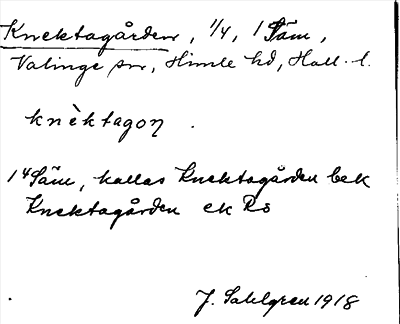 Knektagården, 1/4, 1 Säm,
Valinge sn, Himle hd, Hall. l.
knèktagoɳ.
1 4 Säm, kallas Knektagården bek
Knektagården ek Rs
J. Sahlgren 1918